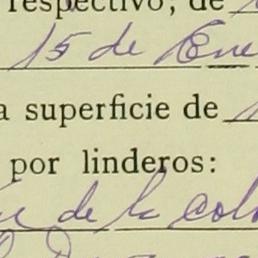 respectivo, de
15 de Ene
a superficie de
por linderos:
de la colo